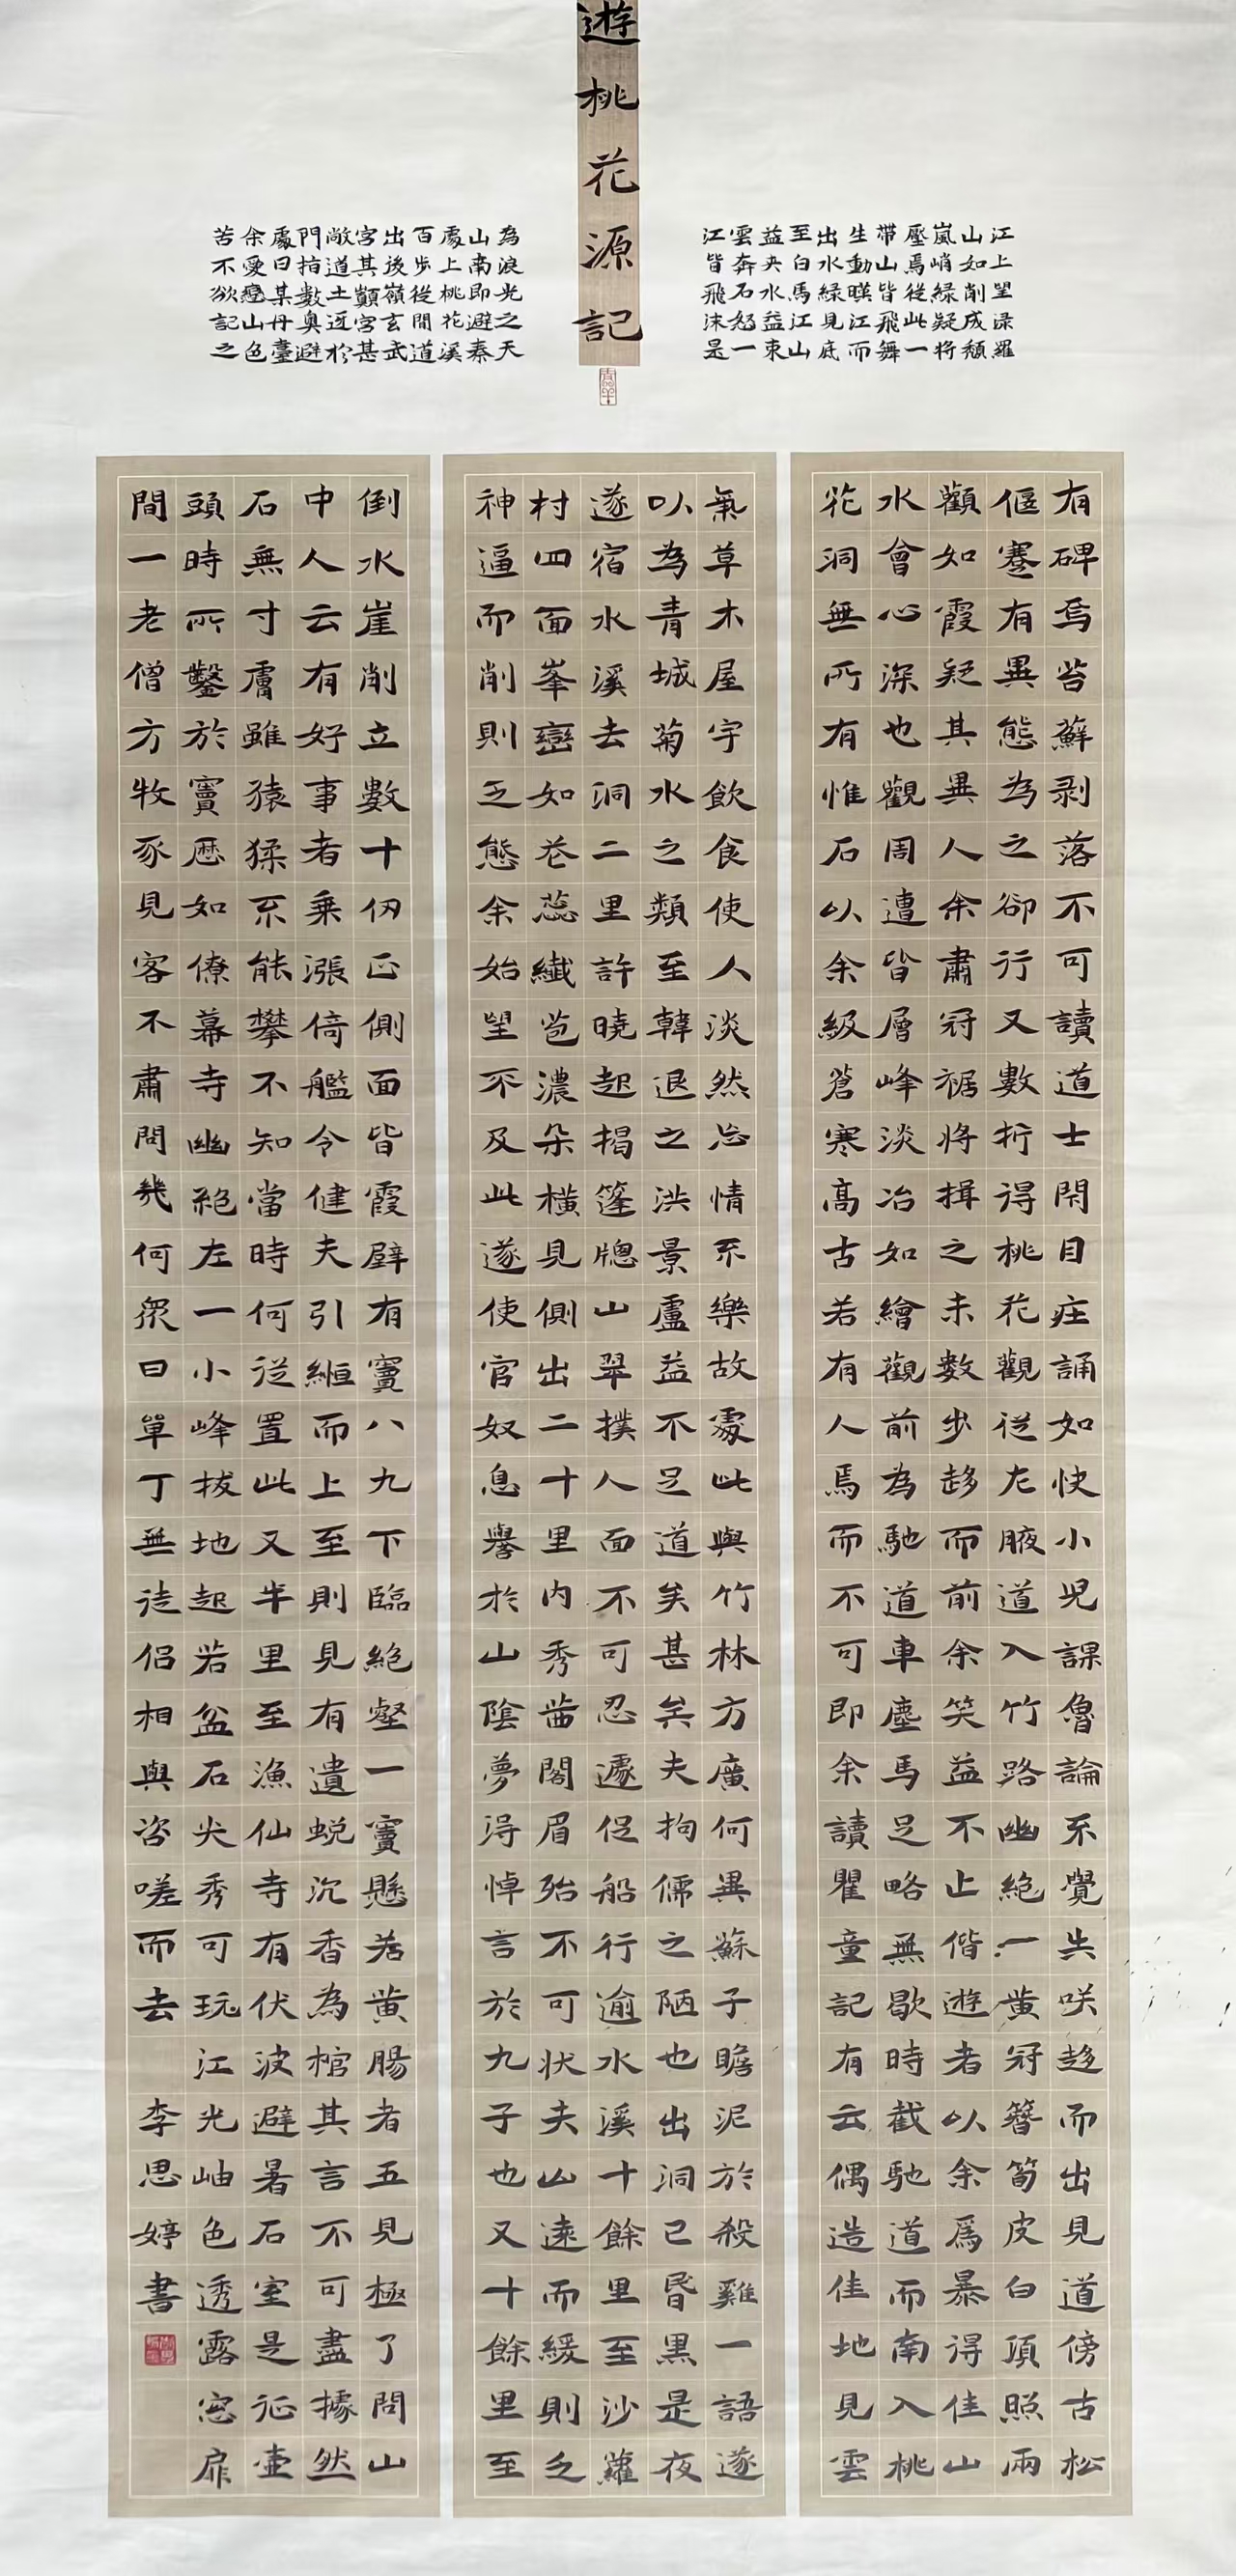 遊桃花源記
江上望淥羅
山如削成頹
嵐峭綠疑將
壓焉從此一
帶山皆飛舞
生動暎江而
出水綠見底
至白馬江山
益夾水益束
雲奔石怒一
江皆飛沫是
為浪光之天
山南即避秦
處上桃花溪
百步從間道
出後嶺玄武
宮其顛宮甚
敞道士迓於
門指數奧避
處曰某丹臺
余愛戀山色
苦不欲記之
有碑焉苔蘚剥落不可讀道士閑目疰誦如快小兒課魯論不覺失咲趍而出見道傍古松
偃蹇有異態為之卻行又數折得桃花觀從左腋道入竹路幽絕一黄冠簪笥皮白頂照兩
顴如霞疑其異人余肅冠裾將揖之未數步趍而前余笑益不止偕遊者以余爲暴得佳山
水會心深也觀周遭皆層峰淡冶如繪觀前為馳道車塵馬足略無歇時截馳道而南入桃
花洞無所有惟石以余級蒼寒高古若有人焉而不可即余讀瞿童記有云偶造佳地見雲
氣草木屋宇飲食使人淡然忘情不樂故處此與竹林方廣何異蘇子瞻泥於殺雞一語遂
以為青城菊水之類至韓退之洪景盧益不足道矣甚矣夫拘儒之陋也出洞已昏黑是夜
遂宿水溪去洞二里許曉起揭篷牕山翠撲人面不可忍遽促船行逾水溪十餘里至沙蘿
村四面峯巒如花蕊纖苞濃朵橫見側出二十里内秀蒨閣眉殆不可狀夫山遠而緩則乏
神逼而削則乏態余始望不及此遂使官奴息譽於山陰夢得悼言於九子也又十餘里至
倒水崖削立數十仞正側面皆霞壁有竇八九下臨絕壑一竇懸若黄腸者五見極了問山
中人云有好事者乘漲倚艦令健夫引縆而上至則見有遺蛻沉香為棺其言不可盡據然
石無寸膚雖猿猱不能攀不知當時何從置此又半里至漁仙寺有伏波避暑石室是征壷
頭時所鑿於竇歷如僚幕寺幽絕左一小峰拔地起若盆石尖秀可玩江光岫色透露窓扉
間一老僧方牧豕見客不肅問幾何眾曰單丁無徒侶相與咨嗟而去 李思婷書